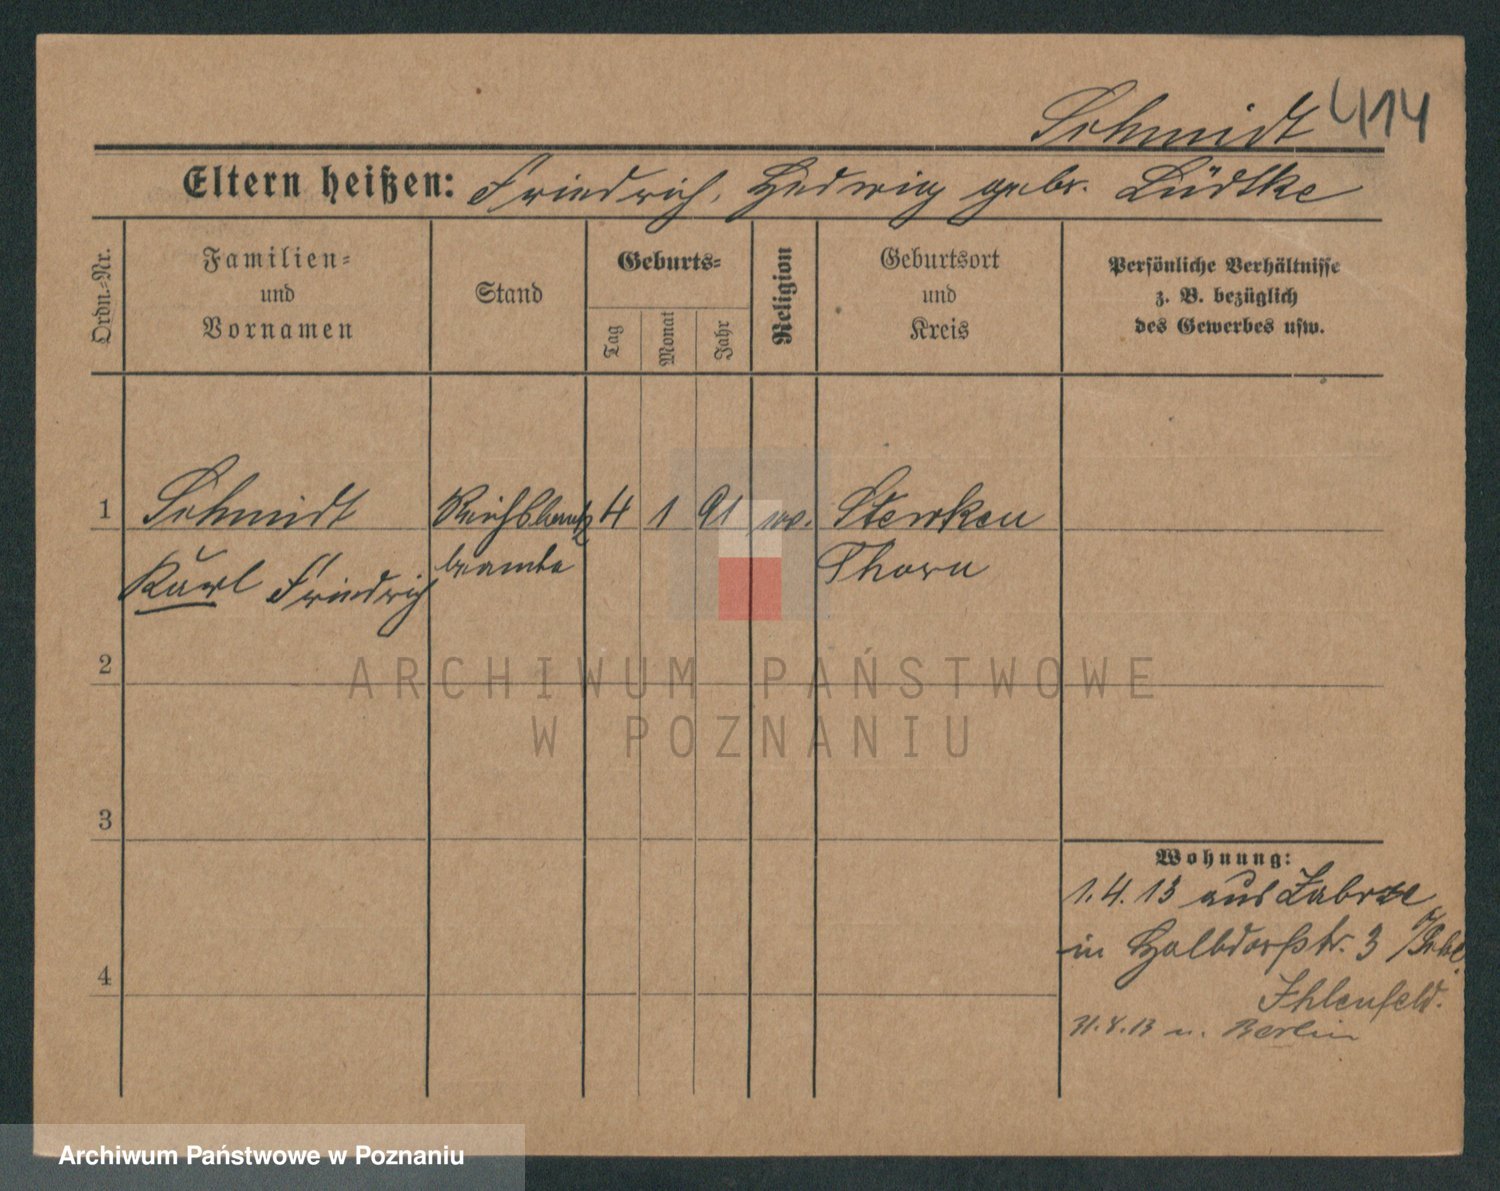 Schmidt 414
Eltern heißen: Friedrich, Hedwig gebr. Lüdtke
Ordn.-Nr.
Familien-
und
Vornamen
Stand
Geburts-
Tag
Monat
Jahr
Religion
Geburtsort
und
Kreis
Persönliche Verhältnisse
z. B. bezüglich
des Gewerbes usw.
1 Schmidt Reichsbank 4 1 91 Sterken
Karl Friedrich beamte Thorn
2
3
4
Wohnung:
1.4.13 aus Zabrze
in Halbdorfstr. 3
Ihlenfeld.
31.8.13 n. Berlin
ARCHIWUM PAŃSTWOWE
W POZNANIU
Archiwum Państwowe w Poznaniu